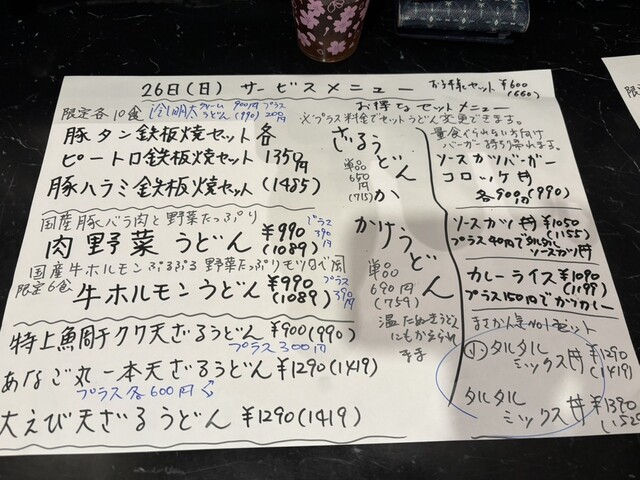 26日(日) サービスメニュー
お子様セット ¥600
(660)
限定各10食
明太クリームうどん 900円 (990) プラス 200円
豚タン鉄板焼セット各
ピートロ鉄板焼セット 1350円
豚ハラミ鉄板焼セット(1485)
お得なセットメニュー
※プラス料金でセットうどん変更できます。
ざるうどん
単品
650円
(715)
か
かけうどん
単品
690円
(759)
温たぬきうどん
にもかえられ
ます
国産豚バラ肉と野菜たっぷり
肉野菜うどん ¥990
(1089)
プラス
390円
国産牛ホルモンぷるぷる 野菜たっぷりモツ鍋風
限定6食
牛ホルモンうどん ¥990
(1089)
プラス
390円
特上魚肉チクワ天ざるうどん ¥900(990)
プラス300円
あなご丸一本天ざるうどん ¥1290(1419)
プラス各600円
大えび天ざるうどん ¥1290(1419)
量食べられない方向け
バーガー持ち帰れます。
ソースカツバーガー
コロッケ丼
各900円(990)
ソースカツ丼 ¥1050
(1155)
プラス90円で
ソースカツ丼
カレーライス ¥1090
(1199)
プラス150円でカツカレー
No1セット
小 タルタル
ミックス丼 ¥1290
(1419)
タルタル
ミックス丼 ¥1390